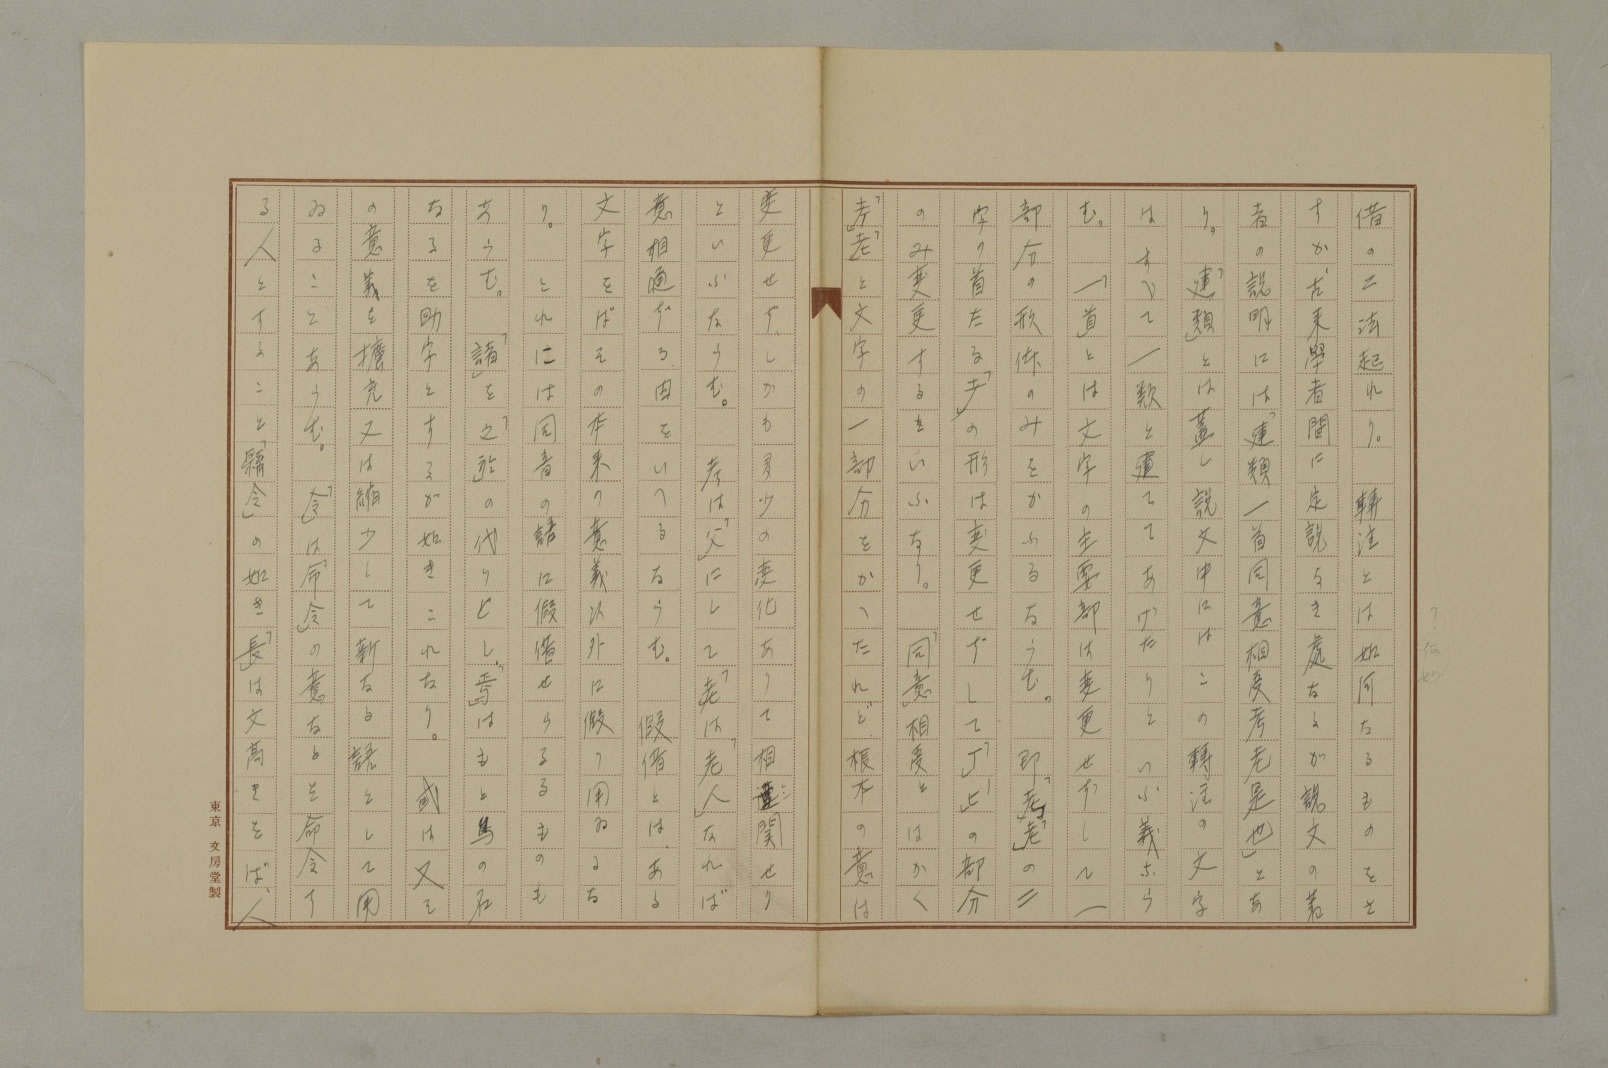 借の二法起れり。 轉注とは如何なるものをさ
すか古來學者間に定説なき處なるが説文の著
者の説明には「建類一首同意相受考老是也」とあ
り。「建類」とは蓋し説文中にはこの轉注の文字
はすべて一類と建てゝあげたりといふ義なら
む。「一首」とは文字の主要部は変更せずして一
部分の形体のみをかふるならむ。 即「考」「老」の二
字の首たる「耂」の形は変更せずして「丂」「匕」の部分
のみ変更するをいふなり。 「同意」相受とはかく
「考」「老」と文字の一部分をかへたれど根本の意は
変更せず、しかも多少の変化ありて相連関せり
といふならむ。 考は「父」にして「老」は「老人」なれば
意相通ずる由をいへるならむ。 假借とは、ある
文字をばその本来の意義以外に假り用ゐるな
り。 これには同音の語に假借せらるるものも
あらむ。 「諸」を「之於」の代りとし、「焉」はもと鳥の名
なるを助字とするが如きこれなり。 或は又そ
の意義を擴充又は縮少して新なる語として用
ゐることあらむ。 「令」は「命令」の意なるを命令す
る人とすること「縣令」の如き「長」は丈高きをば、人
東京 文房堂製